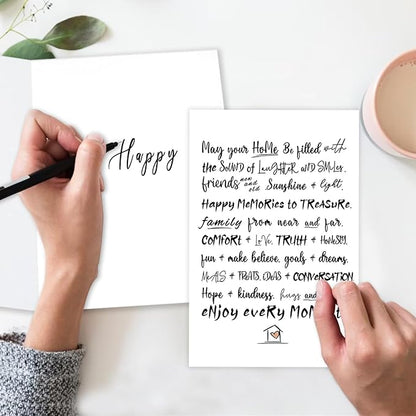 Happy
May your HoMe Be filled with
the SoUND of LaUGHTER, AND SMiLes,
friends new and old, Sunshine + light,
Happy MeMoRies to TReaSuRe,
family from near and far,
COMfoRt + LoVe, TRUTH + HoNeSty,
fun + make believe, goals + dreams,
MeALS + TReATS, IDeAS + CoNVeRSATioN
Hope + kindness, hugs and
eNJoy eveRy MoM